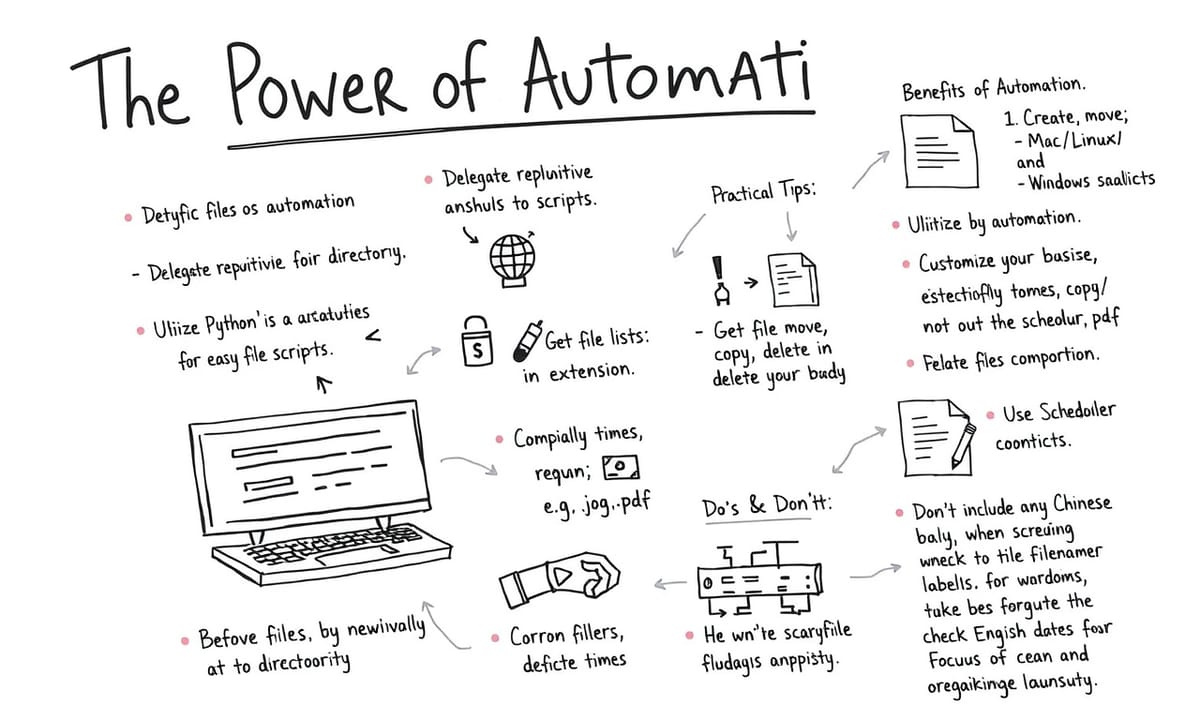 The Power of Automati
Detyfic files os automation
- Delegste repvitivie foir directory.
Uliize Python' is a artatuties
for easy file scripts.
Delegate repluitive
anshuls to scripts.
$
Get file lists:
in extension.
Compially times,
requn;
e.g. .jog,.pdf
Befove files, by newiivally
at to directoority
Corron fillers,
deficte times
Practical Tips:
- Get file move,
copy, delete in
delete your budy
Do's & Don'tt:
He wn'te scaryfiile
fludagıs anppisty.
Benefits of Automation.
1. Create, move;
- Mac/Linux/
and
- Windows saalicts
Uliitize by automation.
Customize your basise,
estectiofly tomes, copy/
not out the scheolur, pdf
Felate files comportion.
Use Schedoller
coonticts.
Don't include any Chinese
baly, when screuing
wneck to tile filenamer
labells. for wardoms,
tuke bes forgute the
check Engish dates foor
Focuus of cean and
oregaikinge launsuty.